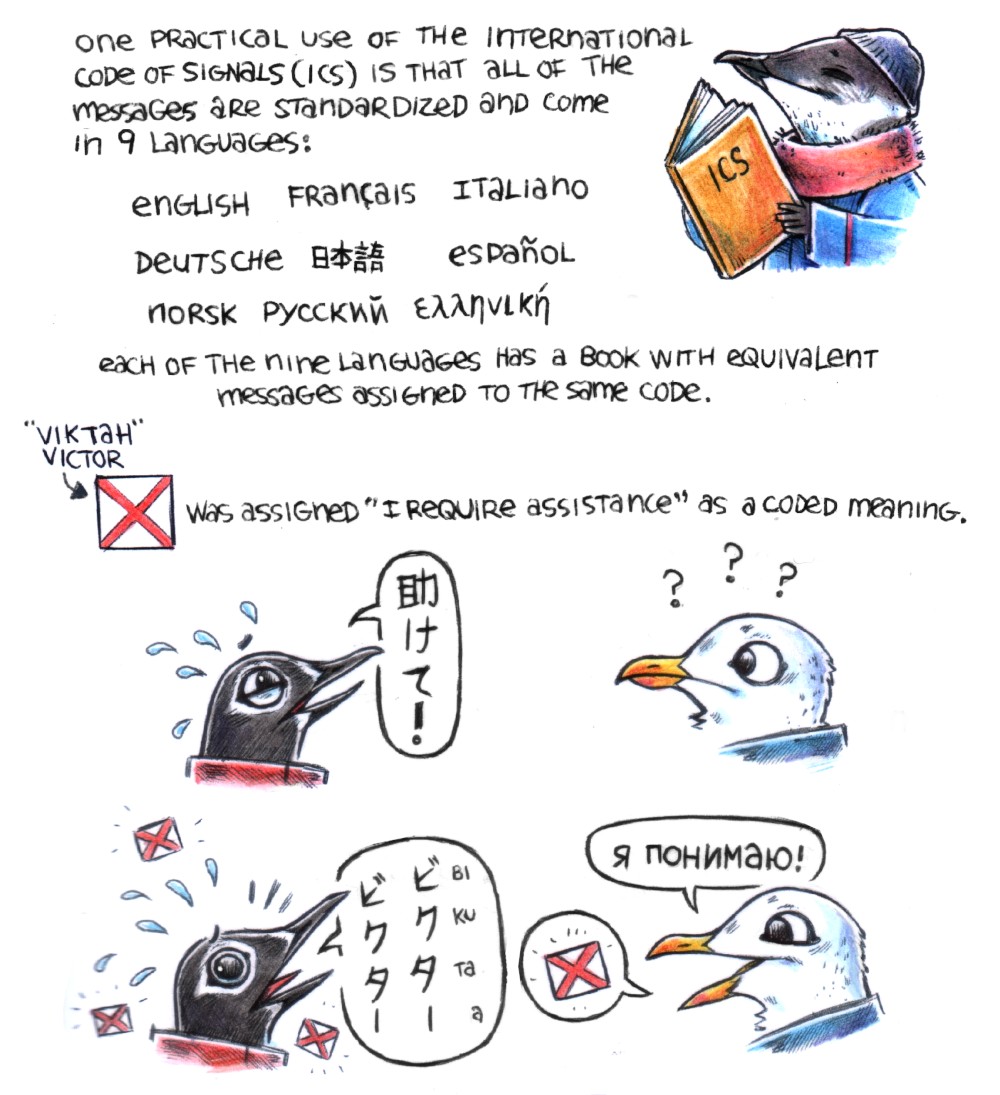 One practical use of the International
Code of Signals (ICS) is that all of the
messages are standardized and come
in 9 languages:
ICS
English Français Italiano
Deutsche 日本語 Español
Norsk Русский Ελληνική
Each of the nine languages has a book with equivalent
messages assigned to the same code.
"Viktah"
Victor
was assigned "I require assistance" as a coded meaning.
助けて!
? ? ?
ビクター
ビクター
Bi
ku
ta
a
Я понимаю!